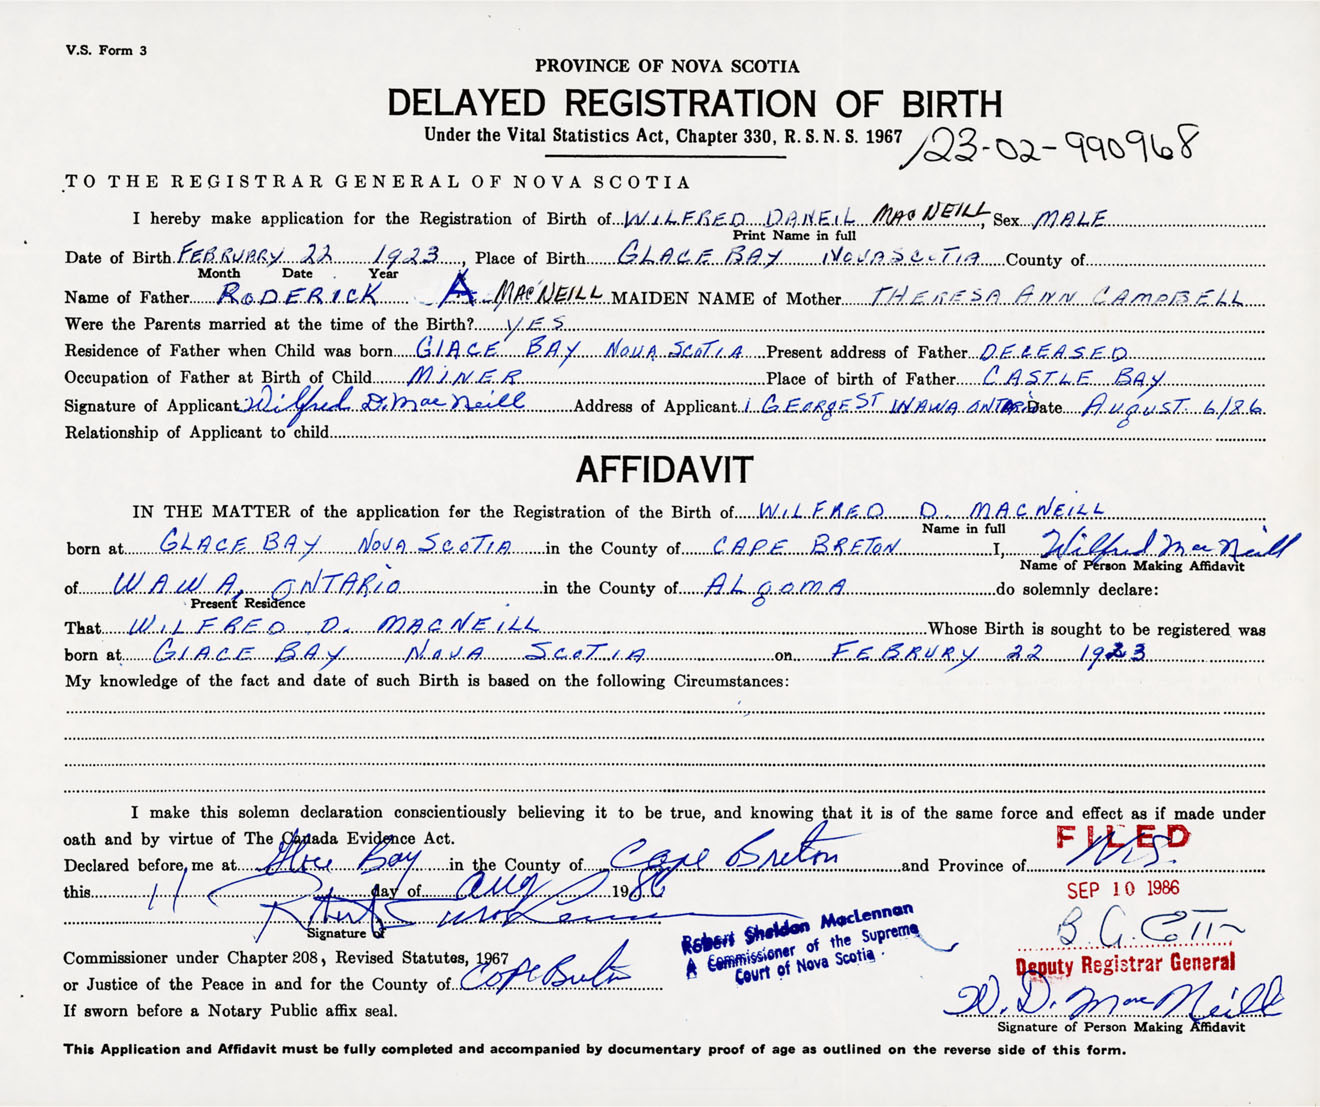 V.S. Form 3
PROVINCE OF NOVA SCOTIA
DELAYED REGISTRATION OF BIRTH
Under the Vital Statistics Act, Chapter 330, R.S.N.S. 1967 123-02-990968
TO THE REGISTRAR GENERAL OF NOVA SCOTIA
I hereby make application for the Registration of Birth of WILFRED DANEIL MACNEILL, Sex MALE
Print Name in full
Date of Birth FEBRUARY 22 1923, Place of Birth GLACE BAY NOVA SCOTIA County of
Month Date Year
Name of Father RODERICK A MACNEILL MAIDEN NAME of Mother THERESA ANN CAMPBELL
Were the Parents married at the time of the Birth? YES
Residence of Father when Child was born GLACE BAY NOVA SCOTIA Present address of Father DECEASED
Occupation of Father at Birth of Child MINER Place of birth of Father CASTLE BAY
Signature of Applicant Wilfred D. MacNeill Address of Applicant 1 GEORGE ST WAWA ONTARIO Date AUGUST 6/86
Relationship of Applicant to child
AFFIDAVIT
IN THE MATTER of the application for the Registration of the Birth of WILFRED D. MACNEILL
Name in full
born at GLACE BAY NOVA SCOTIA in the County of CAPE BRETON I, Wilfred MacNeill
Name of Person Making Affidavit
of WAWA, ONTARIO in the County of ALGOMA do solemnly declare:
Present Residence
That WILFRED D. MACNEILL Whose Birth is sought to be registered was
born at GLACE BAY NOVA SCOTIA on FEBRURY 22 1923
My knowledge of the fact and date of such Birth is based on the following Circumstances:
I make this solemn declaration conscientiously believing it to be true, and knowing that it is of the same force and effect as if made under
oath and by virtue of The Canada Evidence Act.
FILED
Declared before me at Glace Bay in the County of Cape Breton and Province of N.S.
this 11 day of Aug 1986
SEP 10 1986
Signature of
Robert Sheldon MacLennan
A Commissioner of the Supreme
Court of Nova Scotia
Commissioner under Chapter 208, Revised Statutes, 1967
Deputy Registrar General
or Justice of the Peace in and for the County of Cape Breton
W. D. MacNeill
If sworn before a Notary Public affix seal.
Signature of Person Making Affidavit
This Application and Affidavit must be fully completed and accompanied by documentary proof of age as outlined on the reverse side of this form.